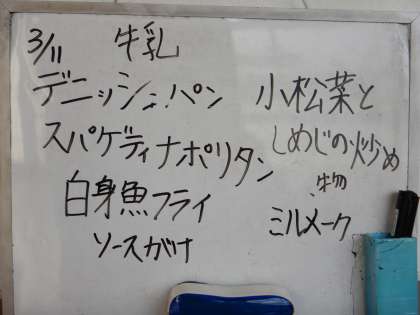 3/11 牛乳
デニッシュパン
スパゲティナポリタン
白身魚フライ
ソースがけ
小松菜と
しめじの炒め
物
ミルメーク